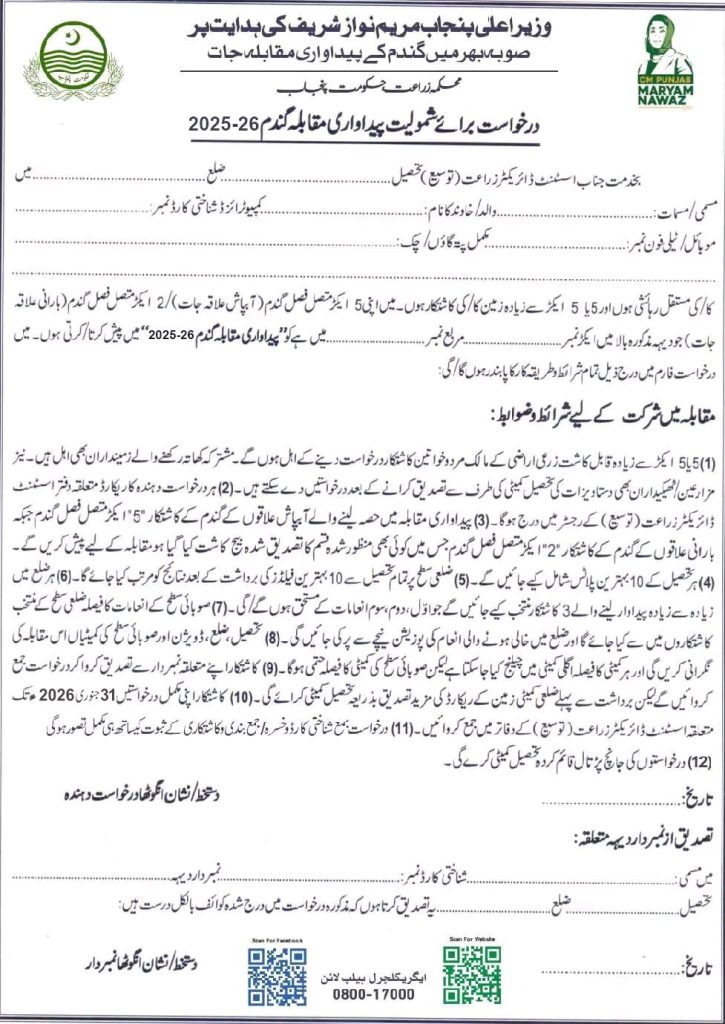 وزیر اعلی پنجاب مریم نواز شریف کی ہدایت پر
صوبہ بھر میں گندم کے پیداواری مقابلہ جات
محکمہ زراعت حکومت پنجاب
CM PUNJAB
MARYAM
NAWAZ
درخواست برائے شمولیت پیداواری مقابلہ گندم 26-2025
بخدمت جناب اسسٹنٹ ڈائریکٹر زراعت (توسیع) تحصیل ........ ضلع ........ میں
مسمی/مسمات: ........ والد/خاوند کا نام: ........ کمپیوٹرائزڈ شناختی کارڈ نمبر: ........
موبائل/ٹیلی فون نمبر: ........ مکمل پتہ گاؤں/چک: ........
........
کا/کی مستقل رہائشی ہوں اور 5 یا 5 ایکڑ سے زیادہ زمین کا/کی کاشتکار ہوں۔ میں اپنی 5 ایکڑ متصل فصل گندم (آبپاش علاقہ جات)/2 ایکڑ متصل فصل گندم (بارانی علاقہ
جات) جو دیہہ مذکورہ بالا میں ایکڑ نمبر ........ مربع نمبر ........ میں ہے کو "پیداواری مقابلہ گندم 26-2025" میں پیش کرتا/کرتی ہوں۔ میں
درخواست فارم میں درج ذیل تمام شرائط و طریقہ کار کا پابند رہوں گا/گی:
مقابلہ میں شرکت کے لیے شرائط و ضوابط:
(1) 5 یا 5 ایکڑ سے زیادہ قابل کاشت زرعی اراضی کے مالک مرد و خواتین کاشتکار درخواست دینے کے اہل ہوں گے۔ مشترکہ کھاتہ رکھنے والے زمینداران بھی اہل ہیں۔ نیز
مزارعین/ٹھیکیداران بھی دستاویزات کی تحصیل کمیٹی کی طرف سے تصدیق کرانے کے بعد درخواستیں دے سکتے ہیں۔ (2) ہر درخواست دہندہ کا ریکارڈ متعلقہ دفتر اسسٹنٹ
ڈائریکٹر زراعت (توسیع) کے رجسٹر میں درج ہوگا۔ (3) پیداواری مقابلہ میں حصہ لینے والے آبپاش علاقوں کے گندم کے کاشتکار "5" ایکڑ متصل فصل گندم جبکہ
بارانی علاقوں کے گندم کے کاشتکار "2" ایکڑ متصل فصل گندم جس میں کوئی بھی منظور شدہ قسم کا تصدیق شدہ بیج کاشت کیا گیا ہو مقابلہ کے لیے پیش کریں گے۔
(4) ہر تحصیل کے 10 بہترین پلاٹس شامل کیے جائیں گے۔ (5) ضلعی سطح پر تمام تحصیل سے 10 بہترین فیلڈز کی برداشت کے بعد نتائج کو مرتب کیا جائے گا۔ (6) ہر ضلع میں
زیادہ سے زیادہ پیداوار لینے والے 3 کاشتکار منتخب کیے جائیں گے جو اوّل، دوم، سوم انعامات کے مستحق ہوں گے/گی۔ (7) صوبائی سطح کے انعامات کا فیصلہ ضلعی سطح کے منتخب
کاشتکاروں میں سے کیا جائے گا اور ضلع میں خالی ہونے والی انعام کی پوزیشن نیچے سے پر کی جائیں گی۔ (8) تحصیل، ضلع، ڈویژن اور صوبائی سطح کی کمیٹیاں اس مقابلہ کی
نگرانی کریں گی اور ہر کمیٹی کا فیصلہ اگلی کمیٹی میں چیلنج کیا جا سکتا ہے لیکن صوبائی سطح کی کمیٹی کا فیصلہ حتمی ہوگا۔ (9) کاشتکار اپنے متعلقہ نمبردار سے تصدیق کروا کر درخواست جمع
کروائیں گے لیکن برداشت سے پہلے ضلعی کمیٹی زمین کے ریکارڈ کی مزید تصدیق بذریعہ تحصیل کمیٹی کرائے گی۔ (10) کاشتکار اپنی مکمل درخواستیں 31 جنوری 2026ء تک
متعلقہ اسسٹنٹ ڈائریکٹر زراعت (توسیع) کے دفاتر میں جمع کروائیں۔ (11) درخواست بمع شناختی کارڈ و خسرہ/جمع بندی و کاشتکاری کے ثبوت کیساتھ ہی مکمل تصور ہوگی
(12) درخواستوں کی جانچ پڑتال قائم کردہ تحصیل کمیٹی کرے گی۔
تاریخ: ........ دستخط/نشان انگوٹھا درخواست دہندہ
تصدیق از نمبردار دیہہ متعلقہ:
میں مسمی: ........ شناختی کارڈ نمبر: ........ نمبردار دیہہ ........
تحصیل ........ ضلع ........ یہ تصدیق کرتا ہوں کہ مذکورہ درخواست میں درج شدہ کوائف بالکل درست ہیں:
تاریخ: ........ دستخط/نشان انگوٹھا نمبردار
Scan For Website
ایگریکلچرل ہیلپ لائن
0800-17000
Scan For Facebook